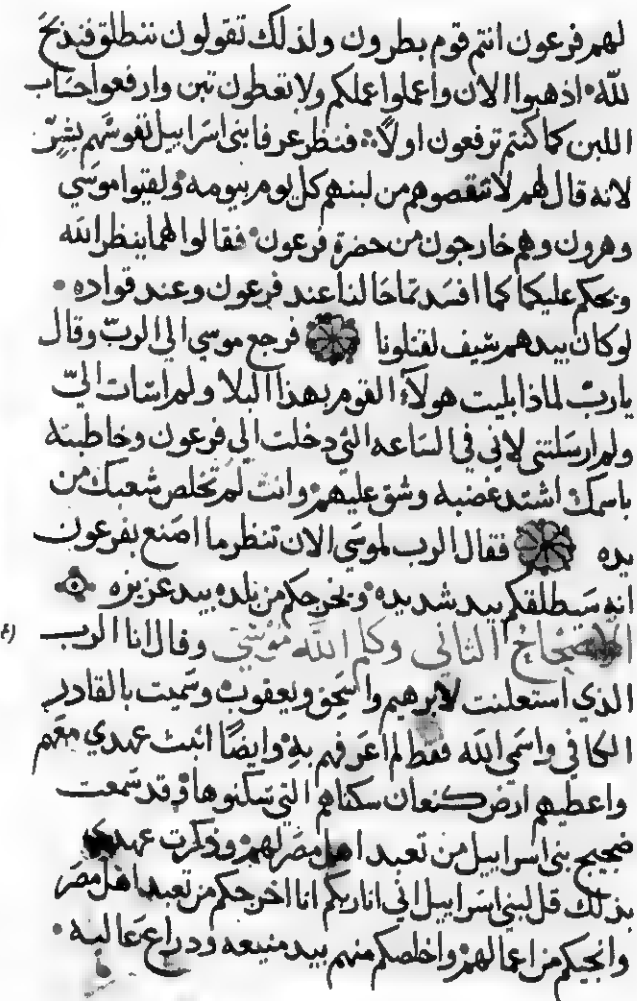 لهم فرعون انتم قوم بطرون ولذلك تقولون ننطلق فنذبح
لله اذهبوا الان واعملوا عملكم ولا تعطون تبن وارفعوا حساب
اللبن كما كنتم ترفعون اولاً فنظر عرفا بنى اسراييل نفوسهم بشرّ
لانه قال لهم لا تنقصوهم من لبنهم كل يوم بيومه ولقيوا موسي
وهرون وهم خارجون من حضرة فرعون فقالوا لهما ينظر الله
ويحكم عليكما كما افسدتما حالنا عند فرعون وعند قواده
لوكان بيدهم سيف لقتلونا فرجع موسي الي الربّ وقال
يارب لماذا بليت هولاء القوم بهذا البلا ولم اسات اليّ
ولم ارسلتني لاني في الساعه التي دخلت الي فرعون وخاطبته
باسمك اشتد غضبه وشق عليهم وانت لم تخلص شعبك من
يده فقال الرب لموسي الان تنظر ما اصنع بفرعون
انه سيطلقكم بيد شديده ويخرجكم من بلده بيد عزيزه
الاصحاح الثاني وكلم الله موسي وقال انا الرب
الذي استعلنت لابرهيم واسحق ويعقوب وسميت بالقادر
الكافي واسمي الله فقط لم اعرفهم به وايضًا اثبت عهدي معهم
واعطيهم ارض كنعان سكناهم التي سكنوها وقد سمعت
ضجيج بني اسراييل من تعبد اهل مصر لهم وذكرت عهدي
بذلك قل لبني اسراييل اني انا ربكم انا اخرجكم من تعبد اهل مصر
وانجيكم من اعمالهم واخلصكم منهم بيد منيعه ودراع عاليه